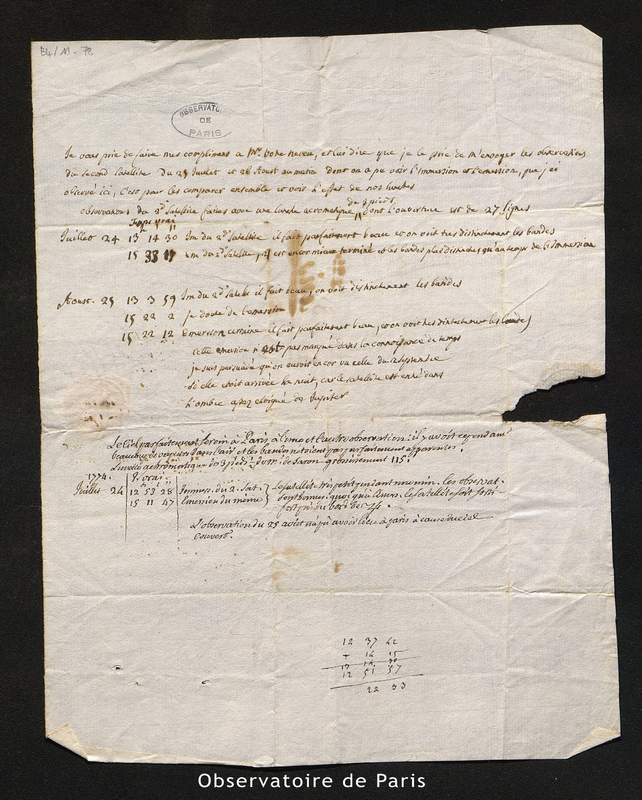 B4/11-78
OBSERVATOIRE
DE
PARIS
Je vous prie de faire mes compliments a Mr. votre neveu, et lui dire que je le prie de m'envoyer les observations
du second satellite du 25 Juillet et 26 Aoust au matin dont on a pu voir l'immersion et l'emersion, que j'ai
observé ici, C'est pour les comparer ensemble et voir l'effet de nos lunetes
observations du 2d satellite faites avec une lunete acromatique de 3 pieds dont l'ouverture est de 27 lignes
Temps vrai
Juillet 24 13 14 30 Im du 2d satellite il fait parfaitement beau et on voit tres distinctement les bandes
15 33 Em du 2d satellite est encor mieux terminé et les bandes plus distinctes qu'au temps de l'immersion
Aoust. 25 13 3 59 Im du 2d satelite il fait beau, on voit distinctement les bandes
15 22 2 je doute de l'emersion
15 22 12 Emersion certaine il fait parfaitement beau, et on voit tres distinctement les bandes
cette emersion n'est pas marqué dans la connoissance de temps
je suis persuadé qu'on auroit encor vu celle du
si elle etoit arrivée la nuit, car le satellite est entré dans
l'ombre assez eloigné de Jupiter
Le Ciel parfaitement serein à Paris à l'une et l'autre observation; il y avoit cependant
beaucoup de vapeurs dans l'air et les bandes n'etoient pas parfaitement apparentes.
Lunette achromatique de 3 pieds ½ grossissement 115.
1774. T. vrai.
Juillet 24 12 53 28 Immers. du 2. Sat. } Le satellite tres petit pendant une min. les observat.
15 11 47 Emersion du même } sont bonnes quoique à l'Emers. le satellite soit sorti
fort près du bord de ♃.
L'observation du 25 août n'a pu avoir lieu à paris à cause du ciel
couvert.
12 37 42
+ 14 15
13 14 30
12 51 57
22 33
Observatoire de Paris